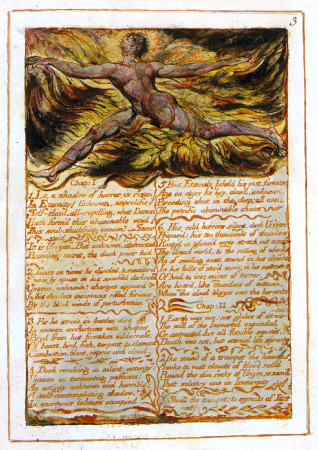 3
Chap: I
1. Lo, a shadow of horror is risen
In Eternity! Unknown, unprolific!
Self-closd, all-repelling: what Demon
Hath form'd this abominable void
This soul-shudd'ring vacuum? Some said
It is Urizen. But unknown, abstracted
Brooding secret, the dark power hid.
2. Times on times he divided, & measur'd
Space by space in his ninefold darkness
Unseen, unknown: changes appeard
In his desolate mountains rifted furious
By the black winds of perturbation
3. For he strove in battles dire
In unseen conflictions with shapes
Bred from his forsaken wilderness,
Of beast, bird, fish, serpent & element
Combustion, blast, vapour and cloud.
4. Dark revolving in silent activity:
Unseen in tormenting passions;
An activity unknown and horrible;
A self-contemplating shadow,
In enormous labours occupied
5. But Eternals beheld his vast forests
Age on ages he lay, clos'd, unknown,
Brooding shut in the deep; all avoid
The petrific abominable chaos
6. His cold horrors silent, dark Urizen
Prepar'd: his ten thousands of thunders
Rang'd in gloom'd array stretch out across
The dread world, & the rolling of wheels
As of swelling seas, sound in his clouds
In his hills of stor'd snows, in his mountains
Of hail & ice; voices of terror,
Are heard, like thunders of autumn,
When the cloud blazes over the harvests
Chap: II
1. Earth was not: nor globes of attraction
The will of the Immortal expanded
Or contracted his all flexible senses.
Death was not, but eternal life sprung
2. The sound of a trumpet the heavens
Awoke & vast clouds of blood roll'd
Round the dim rocks of Urizen, so nam'd
That solitary one in Immensity
3. Shrill the trumpet: & myriads of Eternity